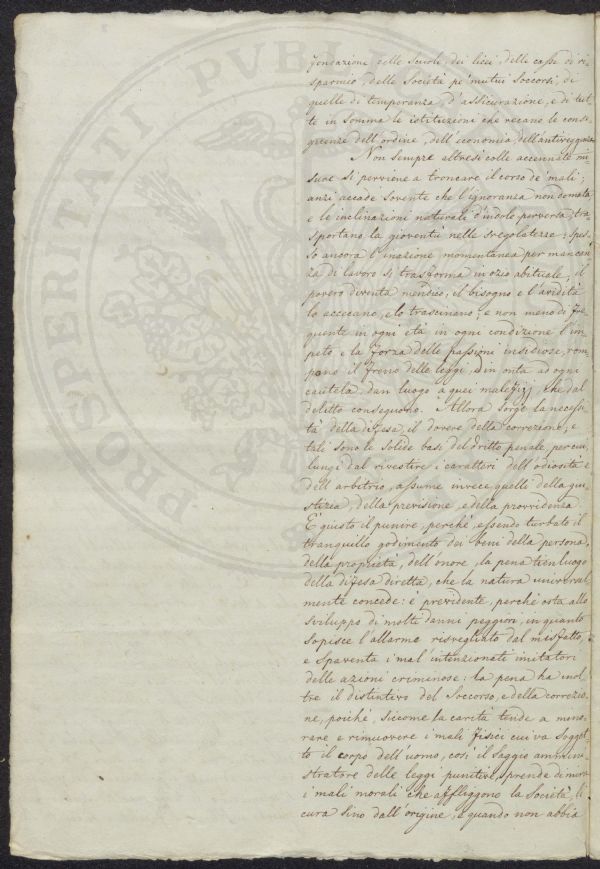 fondazione delle scuole, dei licei, delle casse di ri-
sparmio, delle Società pe' mutui soccorsi, di
quelle di temperanza, d'assicurazione, e di tut-
te in somma le istituzioni che recano le conse-
guenze dell'ordine, dell'economia, dell'antiveggenza.
Non sempre altresì colle accennate mi-
sure si perviene a troncare il corso de' mali;
anzi accade sovente che l'ignoranza non domata
e le inclinazioni naturali d'indole perversa, tra-
sportano la gioventù nelle sregolatezze: spes-
so ancora l'inazione momentanea per mancan-
za di lavoro si trasforma in ozio abituale, il
povero diventa mendico, il bisogno e l'avidità
lo accecano, e lo trascinano; e non meno di fre-
quente in ogni età in ogni condizione l'im-
peto, e la forza delle passioni insidiose, rom-
pono il freno delle leggi, ed in onta ad ogni
cautela, dan luogo a quei malefizj, che dal
delitto conseguono. Allora sorge la necessi-
tà della difesa, il dovere della correzione, e
tali sono le solide basi del dritto penale, per cui,
lungi dal rivestire i caratteri dell'odiosità e
dell'arbitrio, assume invece quelli della giu-
stizia, della previsione, e della provvidenza.
E' giusto il punire, perchè, essendo turbato il
tranquillo godimento dei beni della persona,
della proprietà, dell'onore, la pena tien luogo
della difesa diretta, che la natura universal-
mente concede: è previdente, perchè osta allo
sviluppo di molti danni peggiori, in quanto
sopisce l'allarme risvegliato dal misfatto,
e spaventa i mal'intenzionati imitatori
delle azioni criminose: la pena ha inol-
tre il distintivo del soccorso, e della correzio-
ne, poichè, siccome la carità tende a meno-
rare e rimuovere i mali fisici cui va sogget-
to il corpo dell'uomo, così il saggio ammini-
stratore delle leggi punitive, prende di mira
i mali morali che affliggono la Società, li
cura sino dall'origine, e quando non abbia
PROSPERITATI PVBLI